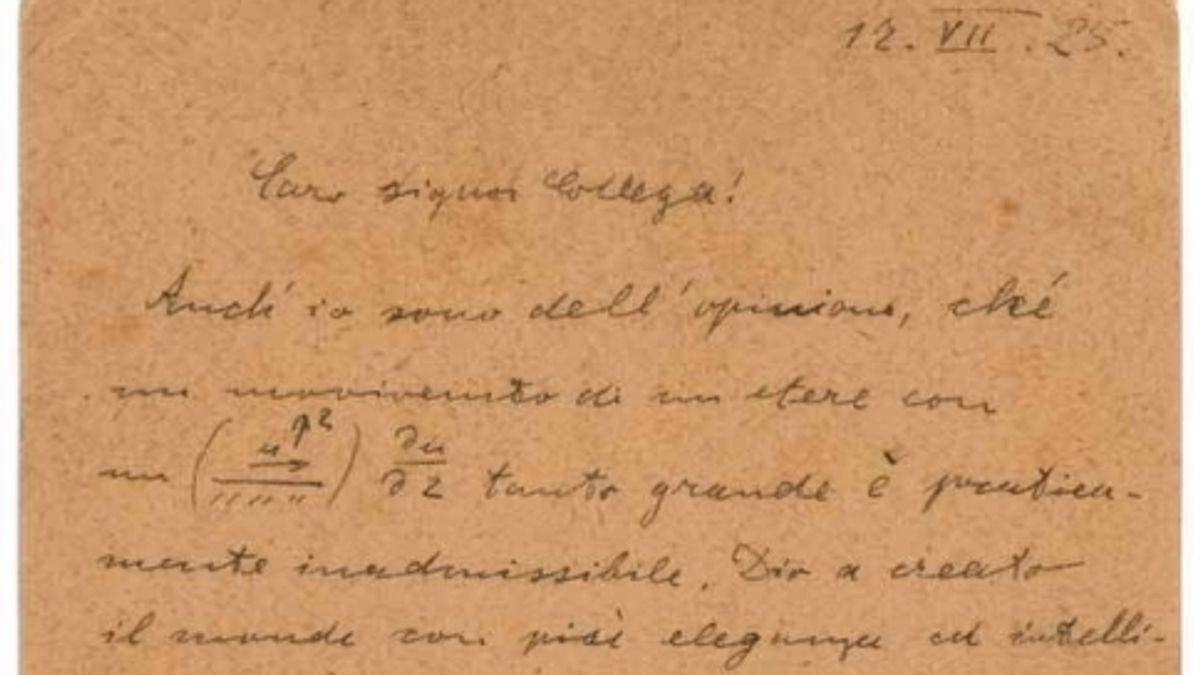 12. VII. 25.
Caro signor Collega!
Anch' io sono dell' opinione, ché
un movivemto di un etere con
un ( u ) ∂u/∂z tanto grande è pratica-
mente inadmissibile. Dio a creato
il monde con più eleganza ed intelli-